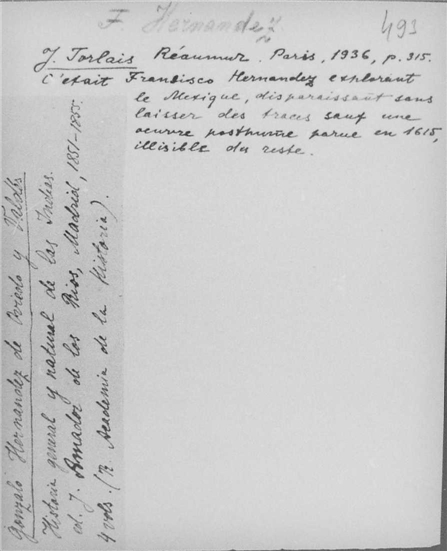 F. Hernandez
493
J. Torlais Réaumur. Paris, 1936, p. 315.
C'était Francisco Hernandez explorant
le Mexique, disparaissant sans
laisser des traces sauf une
oeuvre posthume parue en 1615,
illisible du reste.
Gonzalo Hernandez de Oviedo y Valdés
Historia general y natural de las Indias.
ed. J. Amador de los Rios, Madrid, 1851-1855.
4 vols. (R. Academia de la Historia).